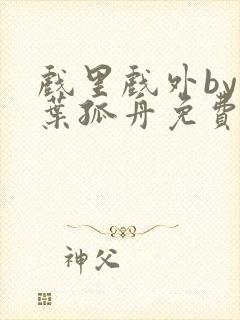 戲里戲外by
葉孤舟免費
神父